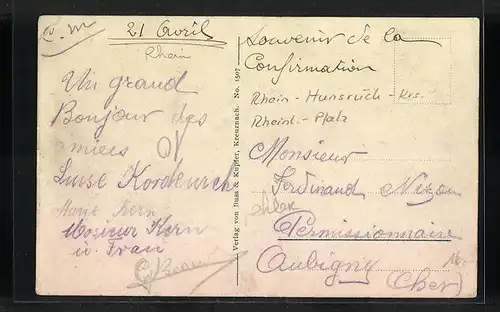 c. m
21 Avril
Rhein
Un grand
Bonjour des
amies
Luise
Marie Kern
Monsieur Kern
u. Frau
Verlag von & Kiefer, Kreuznach. No. 1597
Souvenir de la
Confirmation
Rhein-Hunsrück-Krs.
Rheinl.-Pfalz
Monsieur
Ferdinand
Permissionnaire
Aubigny
(Cher)
16.-